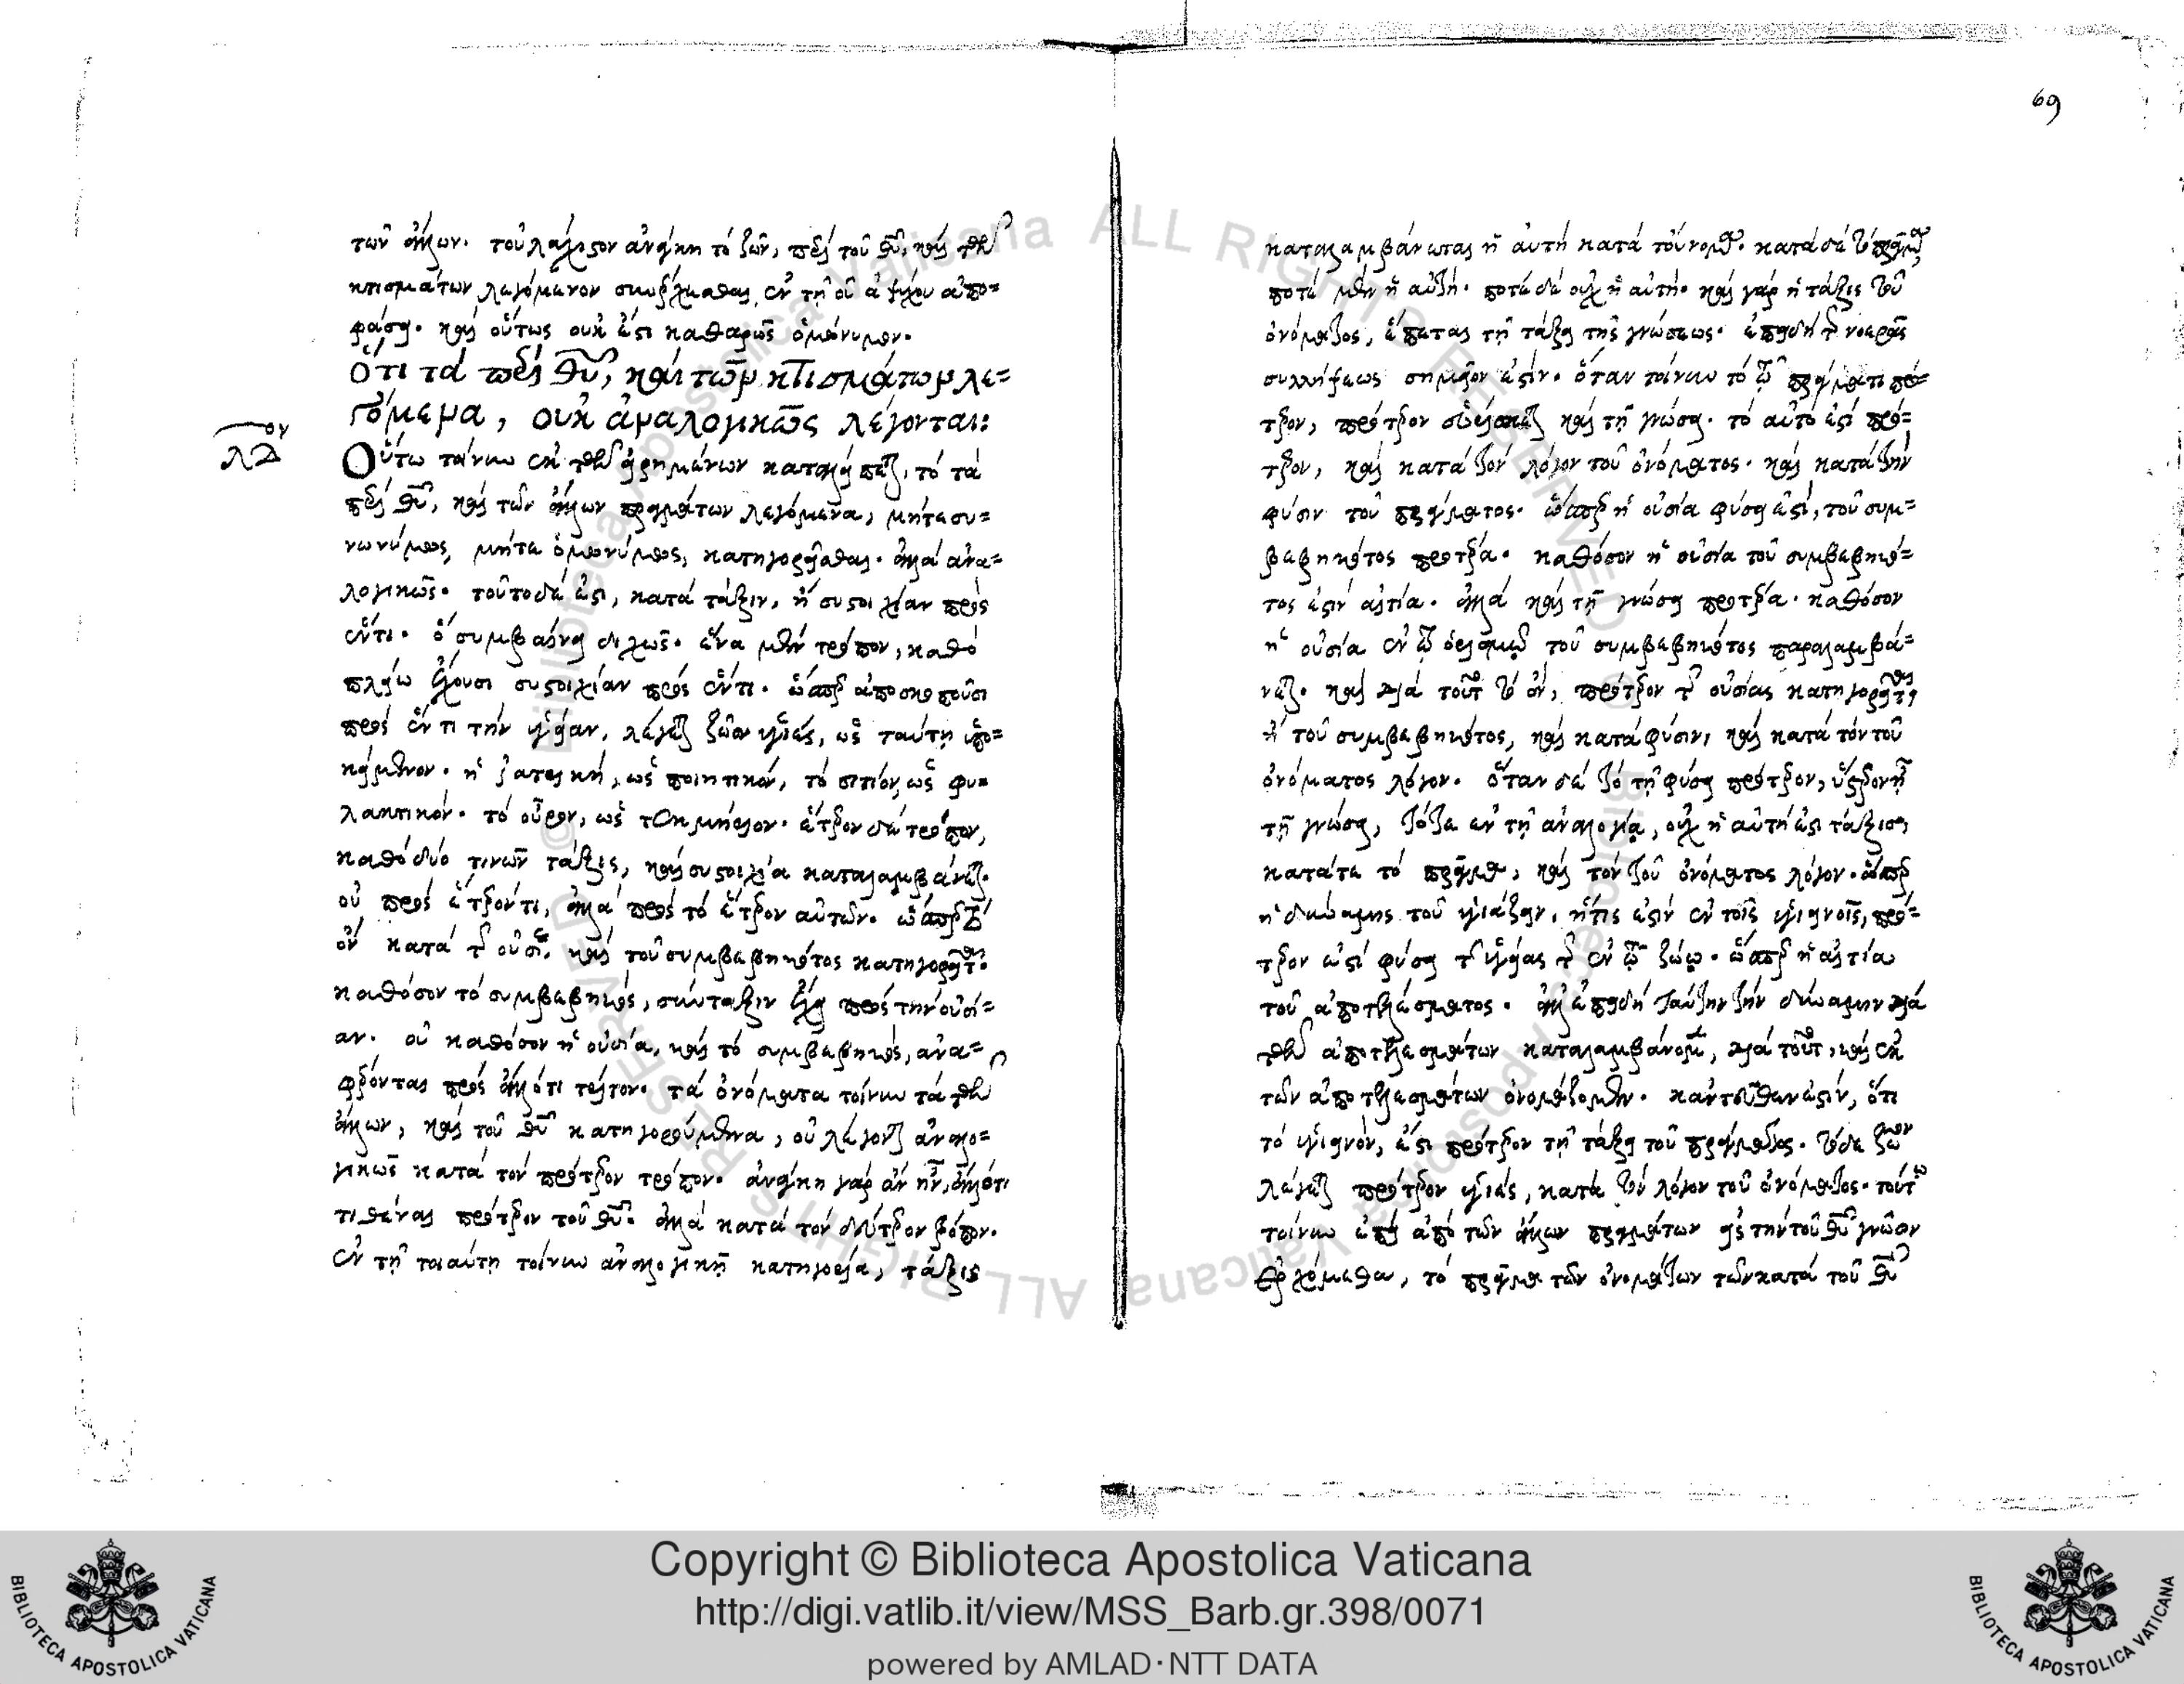 69
των άλλων. τουλάχιστον ανάγκη το ζων, περί του θυ, και των
κτισμάτων λεγόμενον συνέρχεσθαι, εν τη ου αψύχου απο=
φάσει. και ούτως ουκ έστι καθαρώς ομώνυμον.
ότι τα περί θυ, και των κτισμάτων λε=
γόμενα, ουκ αναλογικώς λέγονται:
λδον
Ούτω τοίνυν εκ των ειρημένων καταλείπεται, το τα
περί θυ, και των άλλων πραγμάτων λεγόμενα, μήτε συ=
νωνύμως, μήτε ομωνύμως, κατηγορείσθαι. αλλά ανα=
λογικώς. τούτο δέ εστι, κατά τάξιν, ή συστοιχίαν προς
έν τι. ό συμβαίνει διχώς. ένα μεν τρόπον, καθό
πλείω έχουσι συστοιχίαν προς έν τι. ώσπερ αποσκοπούσι
προς έν τι την υγείαν, λέγεται ζώον υγιές, ως ταύτη υπο=
κείμενον. η ιατρική, ως ποιητικόν, το σιτίον, ως φυ=
λακτικόν. το ούρον, ως τεκμήριον. έτερον δε τρόπον,
καθό δύο τινών τάξις, και συστοιχία καταλαμβάνεται.
ου προς έτερόν τι, αλλά προς το έτερον αυτών. ώσπερ το
όν κατά της ουσίας, και του συμβεβηκότος κατηγορείται.
καθόσον το συμβεβηκός, σύνταξιν έχει προς την ουσί=
αν. ου καθόσον η ουσία, και το συμβεβηκός, ανα=
φέρονται προς άλλό τι τρίτον. τα ονόματα τοίνυν τα των
άλλων, και του θυ κατηγορούμενα, ου λέγονται αναλο=
γικώς κατά τον πρότερον τρόπον. ανάγκη γαρ αν ην, άλλό τι
τιθέναι πρότερον του θυ. αλλά κατά τον δεύτερον τρόπον.
εν τη τοιαύτη τοίνυν αναλογική κατηγορία, τάξις
καταλαμβάνεται η αυτή κατά τούνομα. κατά δε το πράγμα
ποτέ μεν η αυτή. ποτέ δε ουχ η αυτή. και γαρ η τάξις του
ονόματος, έπεται τη τάξει της γνώσεως. επειδή της νοεράς
συλλήψεως σημείον εστίν. όταν τοίνυν το τω πράγματι πρό=
τερον, πρότερον ευρίσκεται και τη γνώσει. το αυτό εστί πρό=
τερον, και κατά τον λόγον του ονόματος. και κατά την
φύσιν του πράγματος. ώσπερ η ουσία φύσει εστί, του συμ=
βεβηκότος προτέρα. καθόσον η ουσία του συμβεβηκό=
τος εστίν αιτία. αλλά και τη γνώσει προτέρα. καθόσον
η ουσία εν τω ορισμώ του συμβεβηκότος παραλαμβά=
νεται. και διά τούτο το όν, πρότερον της ουσίας κατηγορείται
ή του συμβεβηκότος, και κατά φύσιν, και κατά τον του
ονόματος λόγον. όταν δε το τη φύσει πρότερον, ύστερον ή
τη γνώσει, τότε εν τη αναλογία, ουχ η αυτή εστι τάξις
κατά τε το πράγμα, και τον του ονόματος λόγον. ώσπερ
η δύναμις του υγιάζειν, ήτις εστίν εν τοις υγιεινοίς, πρό=
τερον εστί φύσει της υγείας της εν τω ζώω. ώσπερ η αιτία
του αποτελέσματος. αλλ' επειδή ταύτην την δύναμιν διά
των αποτελεσμάτων καταλαμβάνομεν, διά τούτο, και εκ
των αποτελεσμάτων ονομάζομεν. καντεύθεν εστίν, ότι
το υγιεινόν, έστι πρότερον τη τάξει του πράγματος. το δε ζώον
λέγεται πρότερον υγιές, κατά τον λόγον του ονόματος. ούτω
τοίνυν επεί από των άλλων πραγμάτων εις την του θυ γνώσιν
ερχόμεθα, το πράγμα των ονομάτων των κατά του θυ
Copyright © Biblioteca Apostolica Vaticana
http://digi.vatlib.it/view/MSS_Barb.gr.398/0071
powered by AMLAD·NTT DATA
BIBLIOTECA APOSTOLICA VATICANA
BIBLIOTECA APOSTOLICA VATICANA